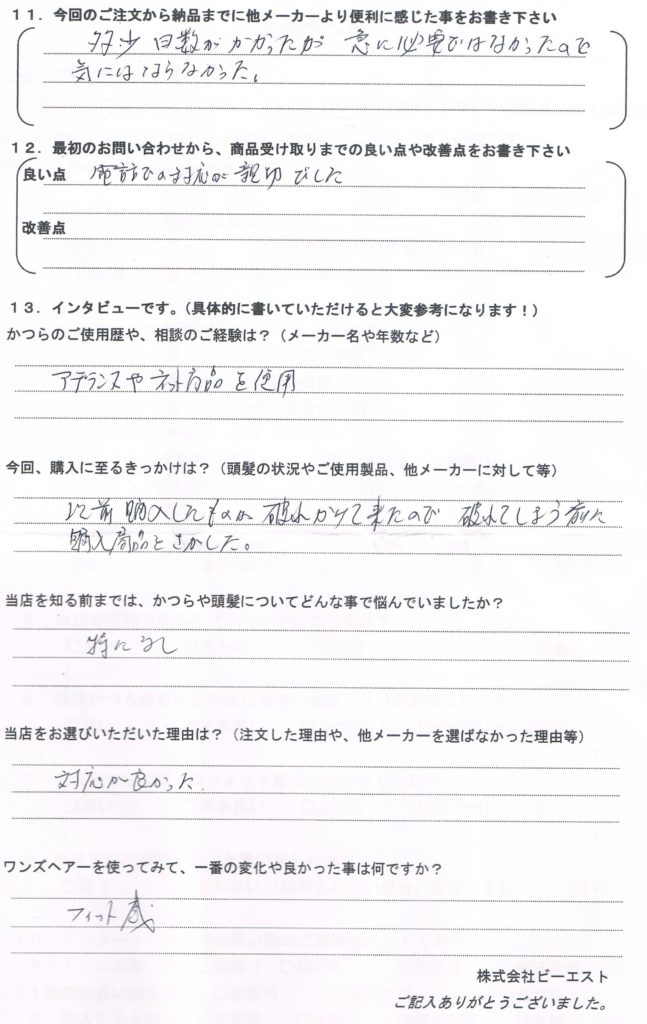 11．今回のご注文から納品までに他メーカーより便利に感じた事をお書き下さい
多少日数がかかったが 急に必要ではなかったので
気にはならなかった。
12．最初のお問い合わせから、商品受け取りまでの良い点や改善点をお書き下さい
良い点 電話での対応が親切でした
改善点
13．インタビューです。（具体的に書いていただけると大変参考になります！）
かつらのご使用歴や、相談のご経験は？（メーカー名や年数など）
アデランスやネット商品を使用
今回、購入に至るきっかけは？（頭髪の状況やご使用製品、他メーカーに対して等）
以前購入したものが破れかけて来たので 破れてしまう前に
購入商品をさがした。
当店を知る前までは、かつらや頭髪についてどんな事で悩んでいましたか？
特になし
当店をお選びいただいた理由は？（注文した理由や、他メーカーを選ばなかった理由等）
対応が良かった．
ワンズヘアーを使ってみて、一番の変化や良かった事は何ですか？
フィット感
株式会社ビーエスト
ご記入ありがとうございました。